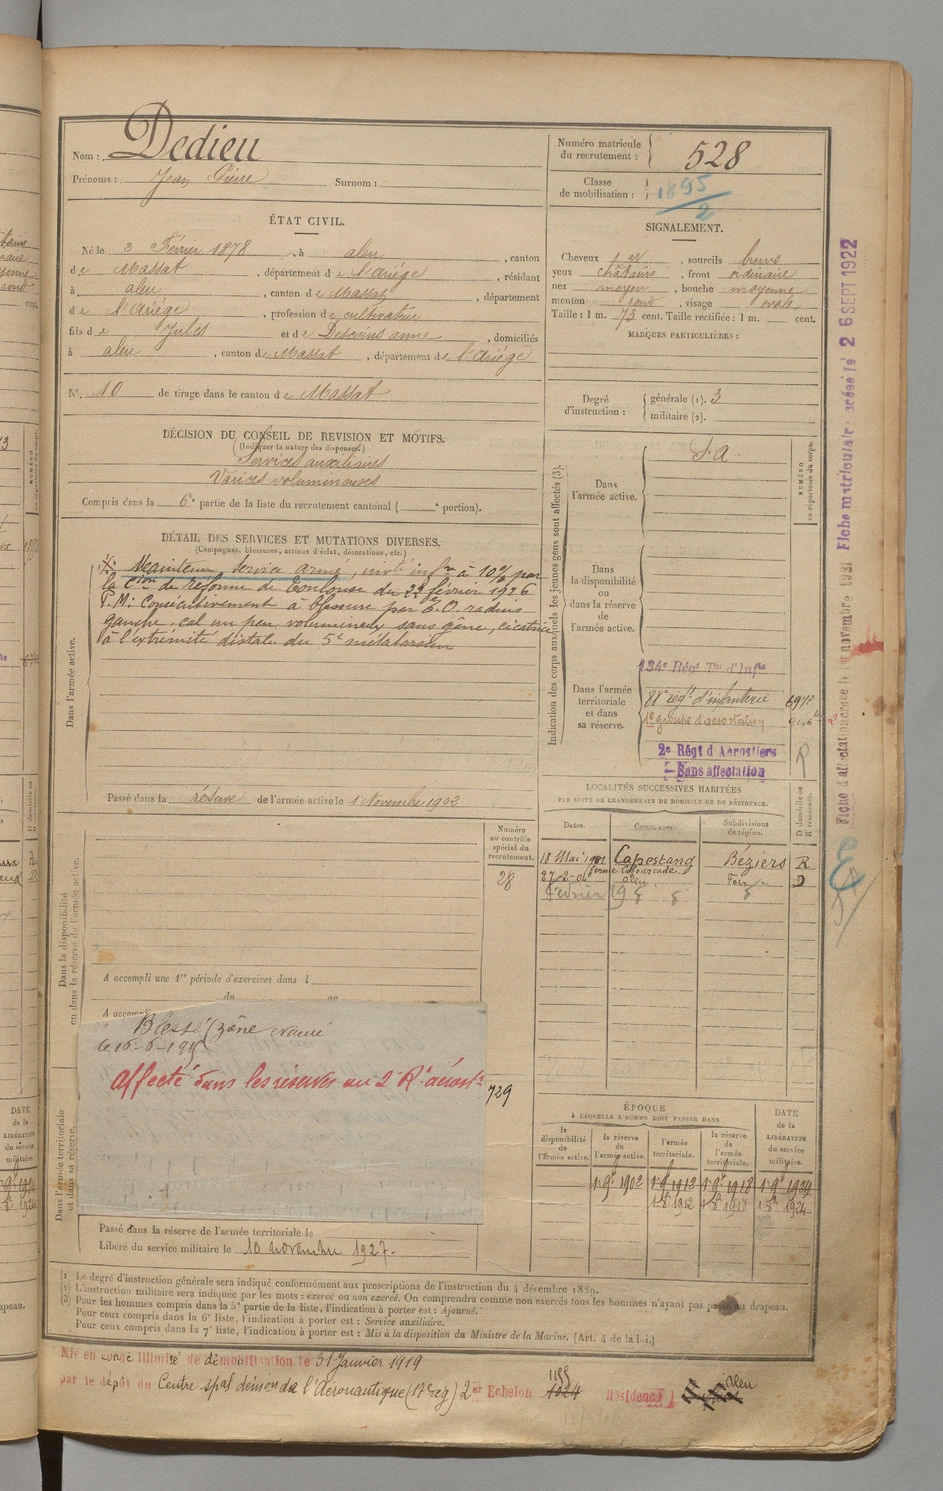 Nom : Dedieu
Prénoms : Jean Pierre Surnom :
Numéro matricule du recrutement : 528
Classe de mobilisation : 1895/2
ÉTAT CIVIL.
Né le 2 Février 1878, à aleu, canton
de Massat, département de l'Ariége, résidant
à aleu, canton de Massat, département
de l'Ariége, profession de cultivateur
fils de Jules et de Descoins anne, domiciliés
à aleu, canton de Massat, département de l'Ariége
N° 10 de tirage dans le canton de Massat
SIGNALEMENT.
Cheveux et sourcils bruns
yeux châtains, front ordinaire
nez moyen, bouche moyenne
menton rond, visage ovale
Taille : 1 m. 73 cent. Taille rectifiée : 1 m. cent.
MARQUES PARTICULIÈRES :
Degré d'instruction : générale (1). 3
militaire (2).
DÉCISION DU CONSEIL DE REVISION ET MOTIFS.
(Indiquer la nature des dispenses.)
Services auxiliaires
Varices volumineuses
Compris dans la 6e partie de la liste du recrutement cantonal ( e portion).
DÉTAIL DES SERVICES ET MUTATIONS DIVERSES.
(Campagnes, blessures, actions d'éclat, décorations, etc.)
Maintenu service armé, invté infre à 10% par
la Cion de réforme de Toulouse du 23 février 1926
P.M: Consécutivement à blessure par E.O. radius
gauche, cal un peu volumineux sans gêne, cicatrice
à l'extrémité distale du 5e métatarsien
Dans l'armée active.
Passé dans la réserve de l'armée active le 1 Novembre 1902
Indication des corps auxquels les jeunes gens sont affectés (3).
NUMÉRO au répertoire du corps.
Dans l'armée active.
S.A.
Dans la disponibilité ou dans la réserve de l'armée active.
Dans l'armée territoriale et dans sa réserve.
134e Régt Tal d'Infie
88e regt d'infanterie
1e groupe d'aerostation
2e Régt d'Aerostiers
Sans affectation
R
LOCALITÉS SUCCESSIVES HABITÉES
PAR SUITE DE CHANGEMENTS DE DOMICILE OU DE RÉSIDENCE.
Dates. Communes. Subdivisions de région. D domicile ou R résidence.
18 Mai 1902 Capestang Béziers R
aleu Foix D
Février
Dans la disponibilité ou dans la réserve de l'armée active.
Numéro au contrôle spécial du recrutement.
28
A accompli une 1re période d'exercices dans l
du au
A accompli
Blessé (zône
le 16-6-1915
Affecté dans les réserves au 2e Rt aérost.
729
Dans l'armée territoriale et dans sa réserve.
Passé dans la réserve de l'armée territoriale le
Libéré du service militaire le 10 novembre 1927.
ÉPOQUE
À LAQUELLE L'HOMME DOIT PASSER DANS
DATE de la LIBÉRATION du service militaire.
la disponibilité de l'armée active. la réserve de l'armée active. l'armée territoriale. la réserve de l'armée territoriale.
1 9e 1902 1 9e 1912 1 9e 1918 1 9e 1924
1912 1918 1924
(1) Le degré d'instruction générale sera indiqué conformément aux prescriptions de l'instruction du 4 décembre 1889.
(2) L'instruction militaire sera indiquée par les mots : exercé ou non exercé. On comprendra comme non exercés tous les hommes n'ayant pas passé au drapeau.
(3) Pour les hommes compris dans la 5e partie de la liste, l'indication à porter est : Ajourné.
Pour ceux compris dans la 6e liste, l'indication à porter est : Service auxiliaire.
Pour ceux compris dans la 7e liste, l'indication à porter est : Mis à la disposition du Ministre de la Marine. (Art. 4 de la loi.)
Mis en congé illimité de démobilisation le 31 Janvier 1919
par le dépôt du Centre spal démon de l'Aéronautique (17e reg) 2er Echelon Résidence aleu
Fiche d'affectation créée le 1er novembre 1921 Fiche matriculaire créée le 26 SEPT 1922